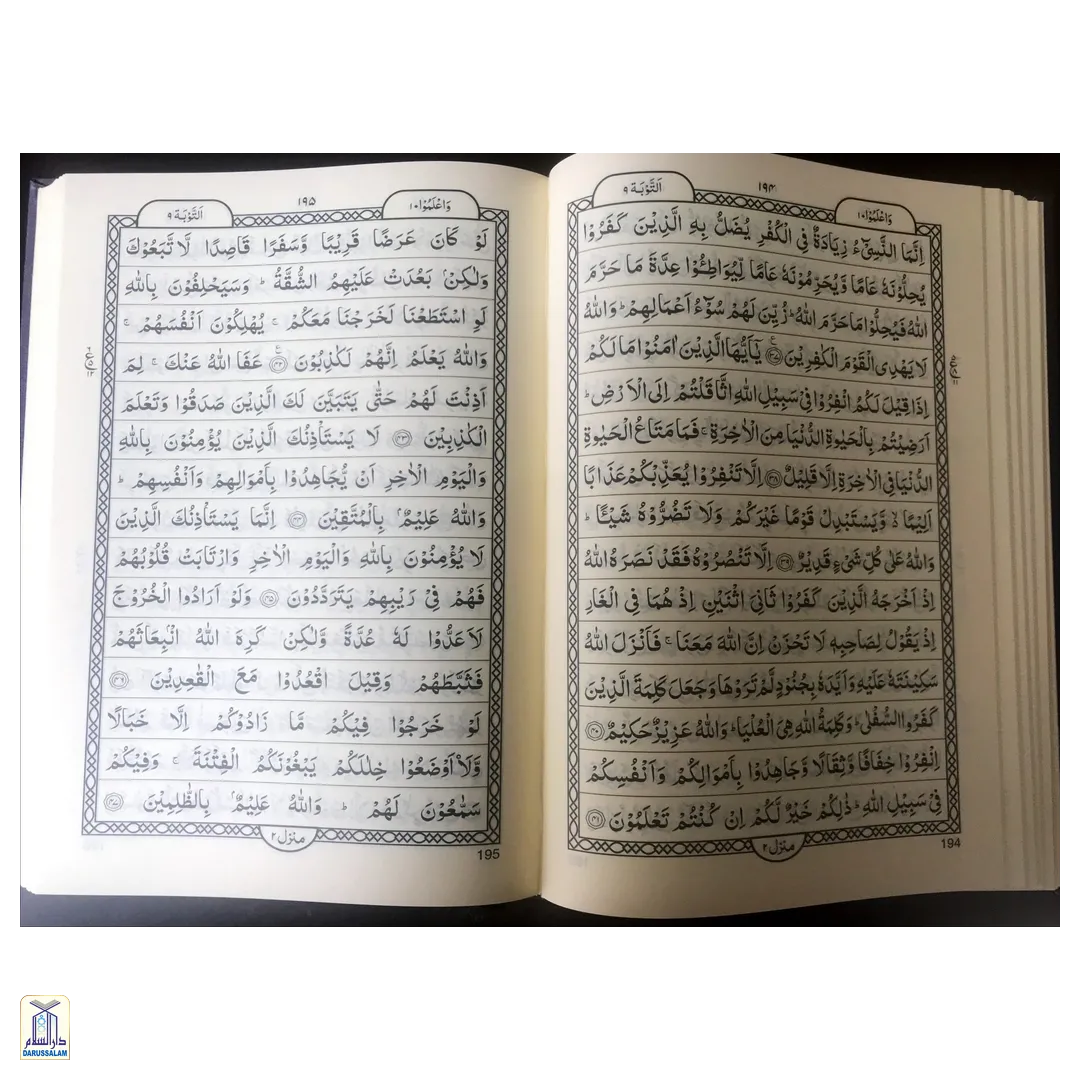 اَلتَّوْبَة ٩
١٩٤
وَاعْلَمُوْا ١٠
اِنَّمَا النَّسِیْٓءُ زِیَادَةٌ فِی الْكُفْرِ یُضَلُّ بِهِ الَّذِیْنَ كَفَرُوْا
یُحِلُّوْنَهٗ عَامًا وَّیُحَرِّمُوْنَهٗ عَامًا لِّیُوَاطِـُٔوْا عِدَّةَ مَا حَرَّمَ
اللّٰهُ فَیُحِلُّوْا مَا حَرَّمَ اللّٰهُ ؕ زُیِّنَ لَهُمْ سُوْٓءُ اَعْمَالِهِمْ ؕ وَاللّٰهُ
لَا یَهْدِی الْقَوْمَ الْكٰفِرِیْنَ ﴿٣٧﴾ یٰۤاَیُّهَا الَّذِیْنَ اٰمَنُوْا مَا لَكُمْ
اِذَا قِیْلَ لَكُمُ انْفِرُوْا فِیْ سَبِیْلِ اللّٰهِ اثَّاقَلْتُمْ اِلَی الْاَرْضِ ؕ
اَرَضِیْتُمْ بِالْحَیٰوةِ الدُّنْیَا مِنَ الْاٰخِرَةِ ۚ فَمَا مَتَاعُ الْحَیٰوةِ
الدُّنْیَا فِی الْاٰخِرَةِ اِلَّا قَلِیْلٌ ﴿٣٨﴾ اِلَّا تَنْفِرُوْا یُعَذِّبْكُمْ عَذَابًا
اَلِیْمًا ۙ۬ وَّیَسْتَبْدِلْ قَوْمًا غَیْرَكُمْ وَلَا تَضُرُّوْهُ شَیْـًٔا ؕ
وَاللّٰهُ عَلٰی كُلِّ شَیْءٍ قَدِیْرٌ ﴿٣٩﴾ اِلَّا تَنْصُرُوْهُ فَقَدْ نَصَرَهُ اللّٰهُ
اِذْ اَخْرَجَهُ الَّذِیْنَ كَفَرُوْا ثَانِیَ اثْنَیْنِ اِذْ هُمَا فِی الْغَارِ
اِذْ یَقُوْلُ لِصَاحِبِهٖ لَا تَحْزَنْ اِنَّ اللّٰهَ مَعَنَا ۚ فَاَنْزَلَ اللّٰهُ
سَكِیْنَتَهٗ عَلَیْهِ وَاَیَّدَهٗ بِجُنُوْدٍ لَّمْ تَرَوْهَا وَجَعَلَ كَلِمَةَ الَّذِیْنَ
كَفَرُوا السُّفْلٰی ؕ وَكَلِمَةُ اللّٰهِ هِیَ الْعُلْیَا ؕ وَاللّٰهُ عَزِیْزٌ حَكِیْمٌ ﴿٤٠﴾
اِنْفِرُوْا خِفَافًا وَّثِقَالًا وَّجَاهِدُوْا بِاَمْوَالِكُمْ وَاَنْفُسِكُمْ
فِیْ سَبِیْلِ اللّٰهِ ؕ ذٰلِكُمْ خَیْرٌ لَّكُمْ اِنْ كُنْتُمْ تَعْلَمُوْنَ ﴿٤١﴾
منزل ٢
194
اَلتَّوْبَة ٩
١٩٥
وَاعْلَمُوْا ١٠
لَوْ كَانَ عَرَضًا قَرِیْبًا وَّسَفَرًا قَاصِدًا لَّاتَّبَعُوْكَ
وَلٰكِنْۢ بَعُدَتْ عَلَیْهِمُ الشُّقَّةُ ؕ وَسَیَحْلِفُوْنَ بِاللّٰهِ
لَوِ اسْتَطَعْنَا لَخَرَجْنَا مَعَكُمْ ۚ یُهْلِكُوْنَ اَنْفُسَهُمْ ۚ
وَاللّٰهُ یَعْلَمُ اِنَّهُمْ لَكٰذِبُوْنَ ﴿٤٢﴾ عَفَا اللّٰهُ عَنْكَ ۚ لِمَ
اَذِنْتَ لَهُمْ حَتّٰی یَتَبَیَّنَ لَكَ الَّذِیْنَ صَدَقُوْا وَتَعْلَمَ
الْكٰذِبِیْنَ ﴿٤٣﴾ لَا یَسْتَاْذِنُكَ الَّذِیْنَ یُؤْمِنُوْنَ بِاللّٰهِ
وَالْیَوْمِ الْاٰخِرِ اَنْ یُّجَاهِدُوْا بِاَمْوَالِهِمْ وَاَنْفُسِهِمْ ؕ
وَاللّٰهُ عَلِیْمٌۢ بِالْمُتَّقِیْنَ ﴿٤٤﴾ اِنَّمَا یَسْتَاْذِنُكَ الَّذِیْنَ
لَا یُؤْمِنُوْنَ بِاللّٰهِ وَالْیَوْمِ الْاٰخِرِ وَارْتَابَتْ قُلُوْبُهُمْ
فَهُمْ فِیْ رَیْبِهِمْ یَتَرَدَّدُوْنَ ﴿٤٥﴾ وَلَوْ اَرَادُوا الْخُرُوْجَ
لَاَعَدُّوْا لَهٗ عُدَّةً وَّلٰكِنْ كَرِهَ اللّٰهُ انْۢبِعَاثَهُمْ
فَثَبَّطَهُمْ وَقِیْلَ اقْعُدُوْا مَعَ الْقٰعِدِیْنَ ﴿٤٦﴾
لَوْ خَرَجُوْا فِیْكُمْ مَّا زَادُوْكُمْ اِلَّا خَبَالًا
وَّلَا۠اَوْضَعُوْا خِلٰلَكُمْ یَبْغُوْنَكُمُ الْفِتْنَةَ ۚ وَفِیْكُمْ
سَمّٰعُوْنَ لَهُمْ ؕ وَاللّٰهُ عَلِیْمٌۢ بِالظّٰلِمِیْنَ ﴿٤٧﴾
منزل ٢
195
دارالسلام
DARUSSALAM